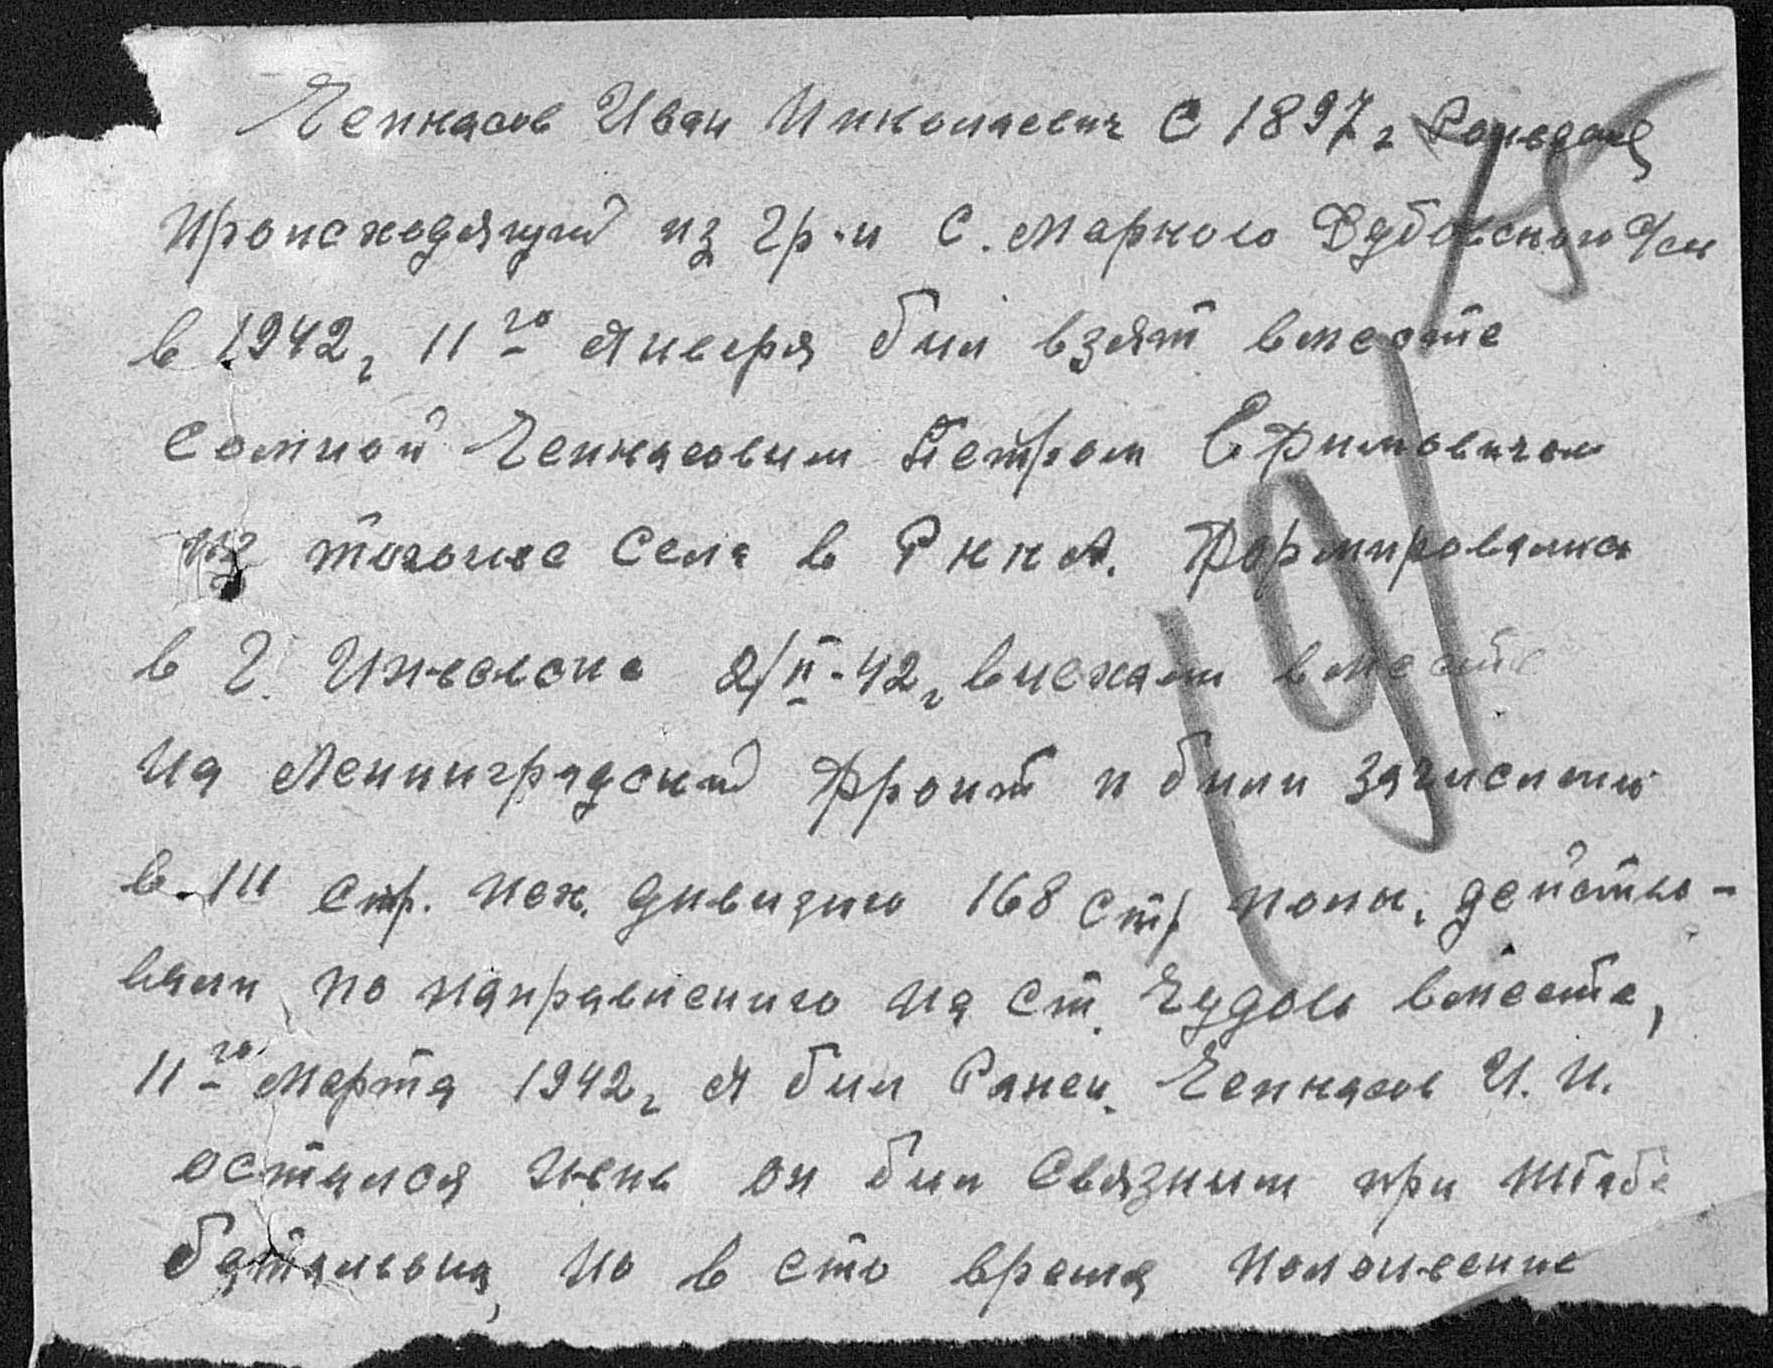 Чепкасов Иван Николаевич с 1897 г Рождение
происходящий из гр-н с. Марково Дубовского
в 1942 г 11го Января был взят вместе
сомной Чепкасовым Петром Ефимовичом
из тогоже села в РККА. Формировались
в г. Ижевске 2/II-42 г, выехали вместе
на Ленинградский фронт и были зачислены
в. 111 стр. пех. дивизию 168 стр полк. действо-
вали по направлению на ст. Чудово вместе,
11го Марта 1942 г Я был Ранен. Чепкасов И. Н.
остался жив он был связным при штабе
батальона, но в ето время положение
191